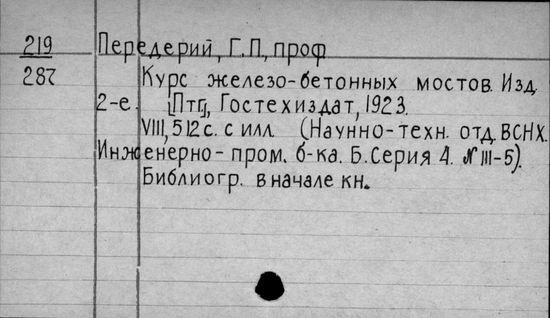 219 Передерий, Г.П, проф
287 Курс железо-бетонных мостов. Изд.
2-е. [Птг], Гостехиздат, 1923.
VIII, 512 с. с илл. (Научно-техн. отд. ВСНХ.
Инженерно-пром. б-ка. Б. Серия 4. № III-5).
Библиогр. в начале кн.